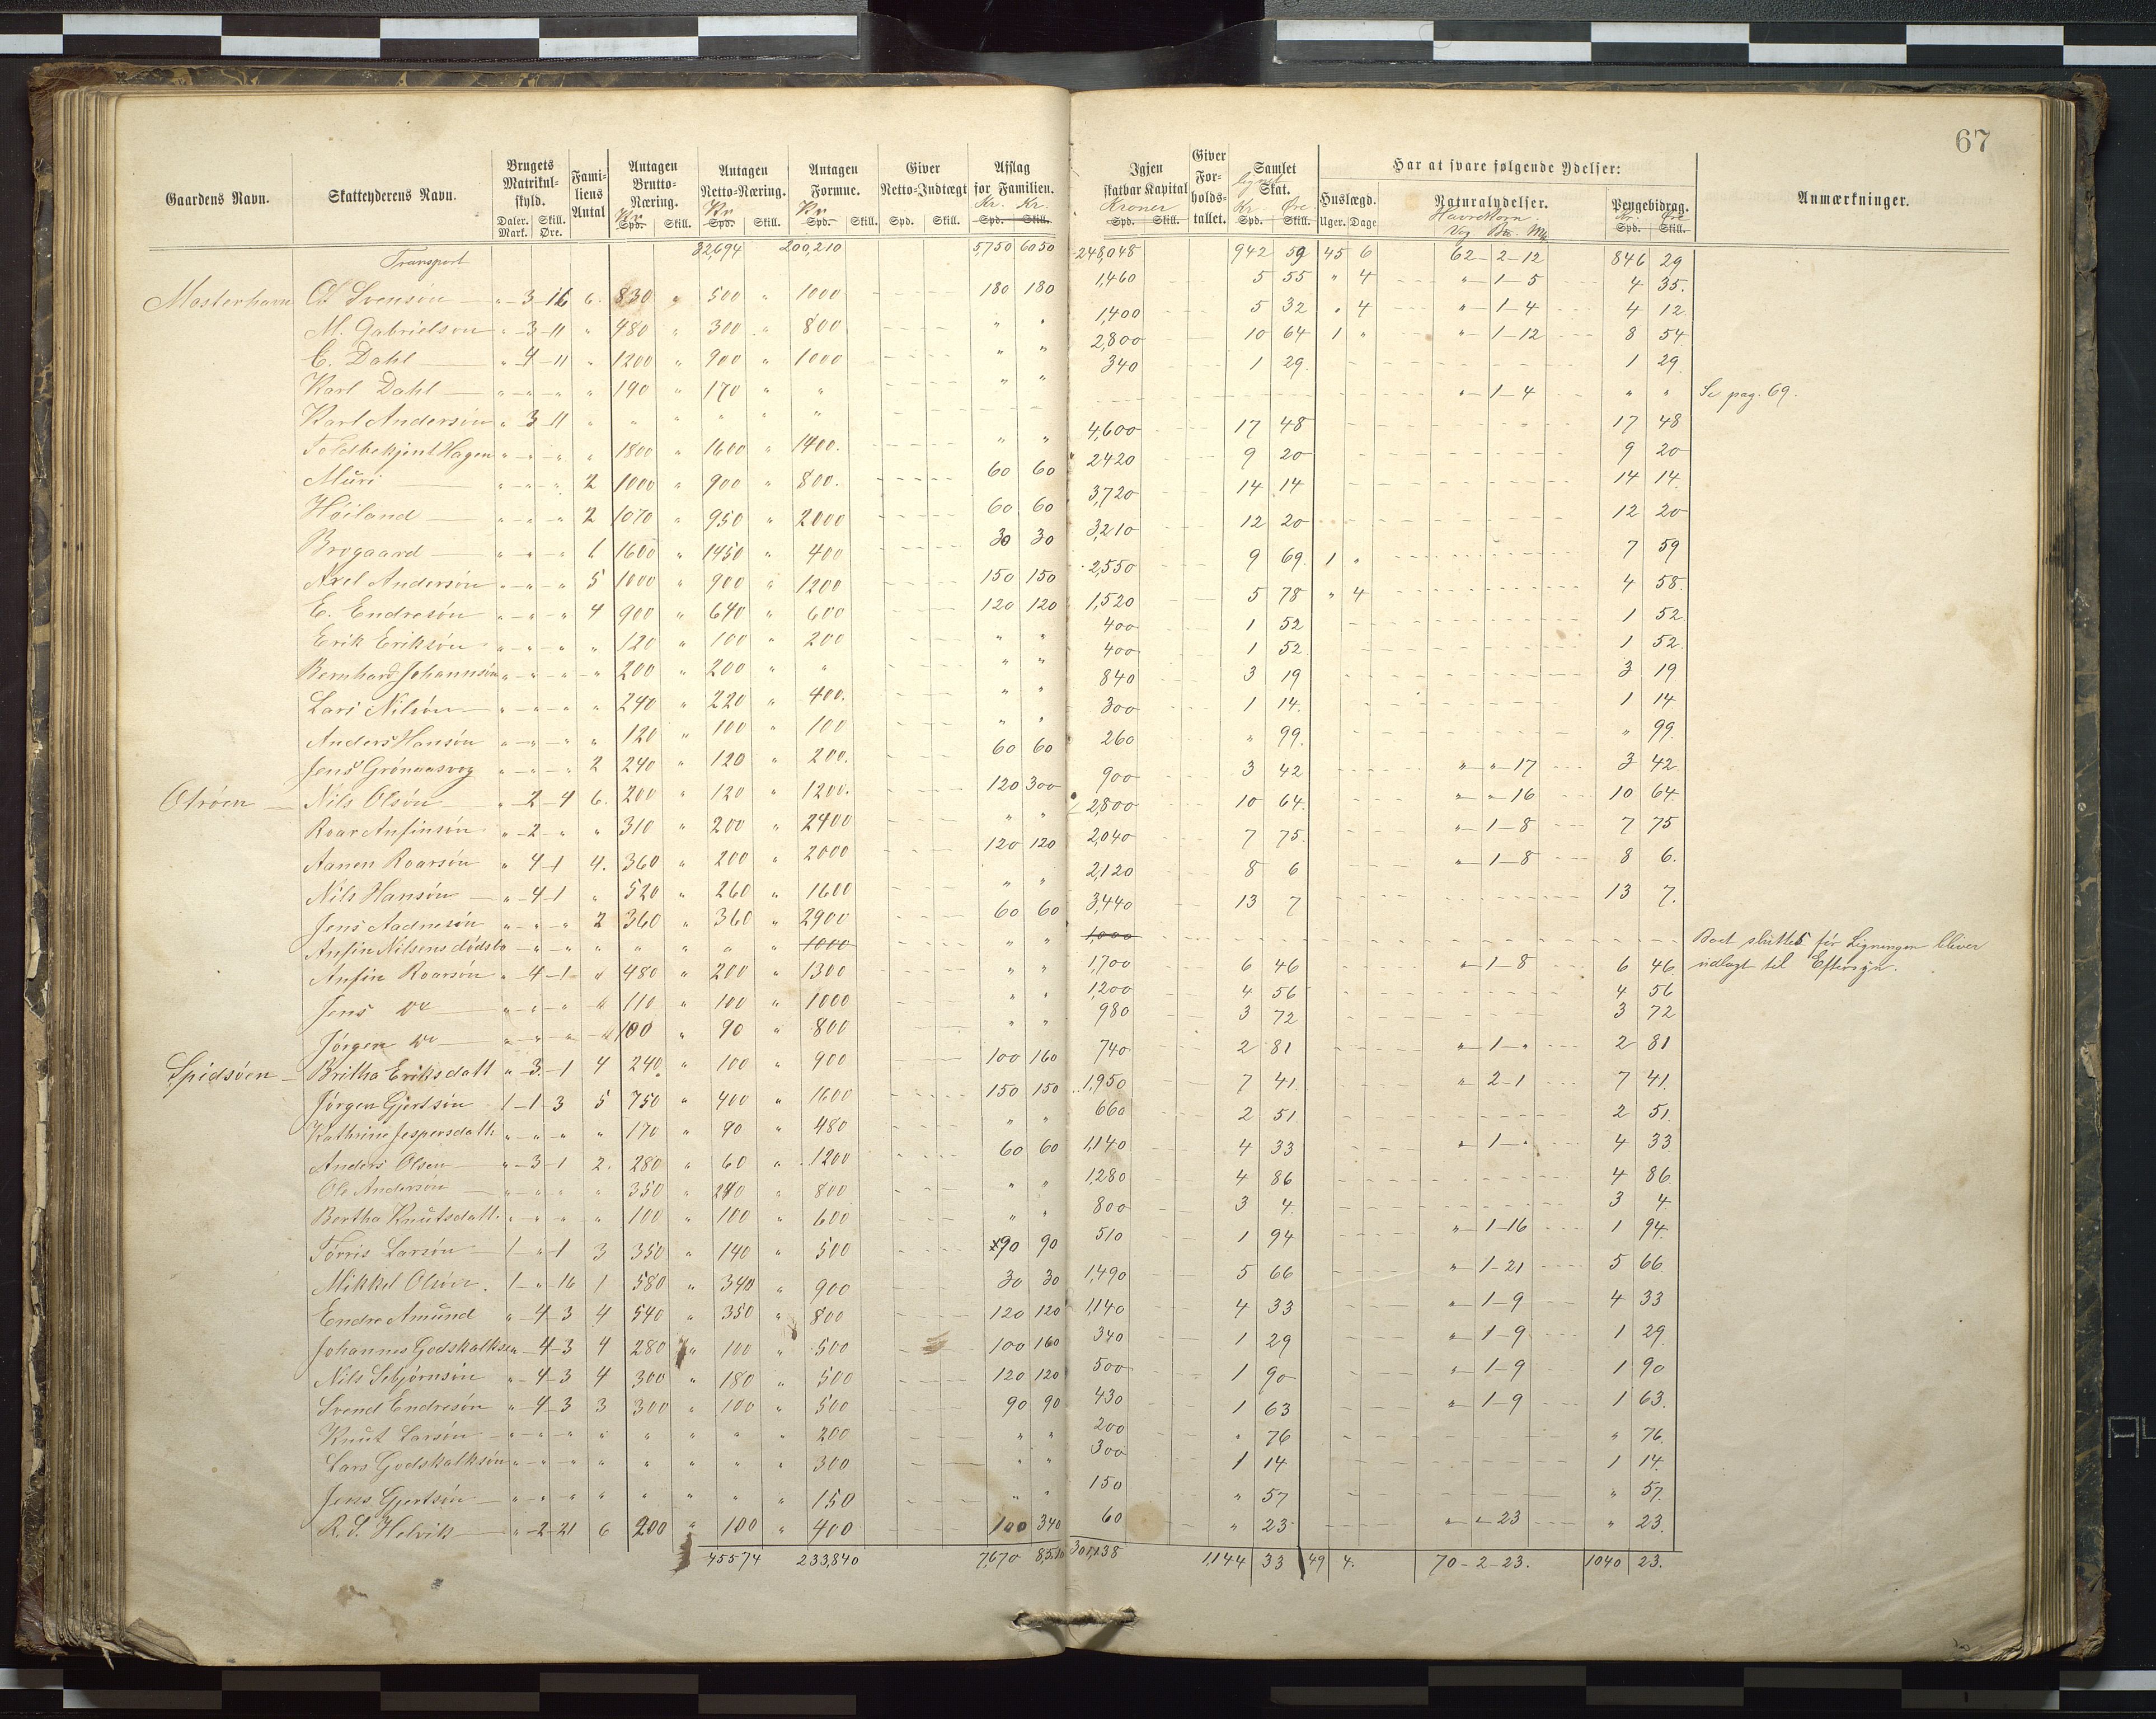 67
Gaardens Navn. Skatteyderens Navn. Brugets Matrikulskyld. Familiens Antal Antagen Brutto-Næring. Antagen Netto-Næring. Antagen Formue. Giver Netto-Indtægt Afslag for Familien. Igjen skatbar Kapital Giver Forholdstallet. Samlet lignet Skat. Har at svare følgende Ydelser: Anmærkninger.
Huslægd. Naturalydelser. Pengebidrag.
Daler. Skill. Mark. Øre. Kr Spd. Skill. Kr Spd. Skill. Kr Spd. Skill. Spd. Skill. Kr. Kr. Spd. Skill. Kroner Spd. Skill. Kr. Øre Spd. Skill. Uger. Dage Havrekorn. Vog Bn Mk Kr. Øre Spd. Skill.
Transport 32,694 200,210 5,750 6050 248,048 942 59 45 6 62-2-12 846 29
Mosterhavn Ol Svensøn " 3 16 6. 830 " 500 " 1000 180 180 1,460 5 55 " 4 "-1-5 4 35.
M. Gabrielson " 3 11 " 480 " 300 " 800 " " 1,400 5 32 " 4 "-1-4 4 12
C. Dahl " 4 11 " 1200 " 900 " 1000 " " 2,800 10 64 1 " "-1-12 8 54
Karl Dahl " " " " 190 " 170 " " " " 340 1 29. 1 29.
Karl Andersøn " 3 11 " " " " " " "-1-4 " " Se pag. 69.
Toldbekjent Hagen " " " " 1800 " 1600 " 1400. " " 4,600 17 48 17 48
Müri " " " 2 1000 " 900 " 800. 60 60 2420 9 20 9 20
Høiland " " " 2 1070 " 950 " 2000 60 60 3,720 14 14 14 14.
Brogaard " " " 1 1600 " 1450 " 400 30 30 3,210 12 20 12 20
Axel Andersøn " " " 5 1000 " 900 " 1200 150 150 2,550 9 69. 1 " 7 59
E. Endresøn " " " 4 900 " 640 " 600 120 120 1,520 5 78 " 4 4 58.
Erik Eriksøn " " " " 120 " 100 " 200 " " 400 1 52 1 52
Bernhard Johannsøn " " " " 200 " 200 " " " " 400 1 52 1 52.
Lars Nilsøn " " " " 240 " 220 " 400. " " 840 3 19 3 19
Anders Hansøn " " " " 120 " 100 " 100 " " 300 1 14. 1 14
Jens Grönnasvog " " " 2 240 " 120 " 200. 60 60 260 " 99. " 99.
Otröen Nils Olsøn " 2 4 6. 200 " 120 " 1200. 120 300 900 3 42 "-"-17 3 42
Roar Anfinsøn " 2 " " 310 " 200 " 2400 " " 2,800 10 64. "-"-16 10 64.
Aanen Roarsøn " 4 1 4. 360 " 200 " 2000 120 120 2,040 7 75. "-1-8 7 75
Nils Hansøn " 4 1 " 520 " 260 " 1600 " " 2,120 8 6 "-1-8 8 6.
Jens Aadnesøn " " " 2 360 " 360 " 2900 60 60 3,440 13 7 13 7.
Anfin Nilsens dödsbo " " " " " " " " 1000 " " 1,000 Boet sluttet før Ligningen blever
Anfin Roarsøn " 4 1 " 480 " 200 " 1300 " " 1,700 6 46 "-1-8 6 46 udlagt til Eftersyn.
Jens do " " " " 110 " 100 " 1000 " " 1,200 4 56 4 56
Jørgen do " " " " 100 " 90 " 800 " " 980 3 72 3 72
Spidsöen Britha Eriksdatt " 3. 1 4 240 " 100 " 900 100 160 740 2 81 "-1-" 2 81
Jørgen Gjertsøn 1 1 3 5 750 " 400 " 1600 150 150 1,950 7 41 "-2-1 7 41.
Kathrine Jespersdatt. " " " " 170 " 90 " 480 " " 660 2 51 2 51
Anders Olsen " 3 1 2. 280 " 60 " 1200 60 60 1,140 4 33 "-1-" 4 33
Ole Andersøn " " " " 350 " 240 " 800 " " 1,280 4 86 4 86.
Bertha Knutsdatt. " " " " 100 " 100 " 600 " " 800 3 4. 3 4.
Torris Larsøn 1 " 1 3 350 " 140 " 500 90 90 510 1 94 "-1-16 1 94.
Mikkel Olsøn 1 " 16 1 580 " 340 " 900 30 30 1,490 5 66 "-1-21 5 66
Endre Amund " 4 3 4 540 " 350 " 800 120 120 1,140 4 33 "-1-9 4 33
Johannes Godskalksen " 4 3 4 280 " 100 " 500 100 160 340 1 29 "-1-9 1 29
Nils Sebjørnsøn " 4 3 4 300 " 180 " 500 120 120 500 1 90 "-1-9 1 90
Svend Endresøn " 4 3 3 300 " 100 " 500 90 90 430 1 63 "-1-9 1 63.
Knut Larsøn " " " " " " " " 200 " " 200 " 76 " 76.
Lars Godskalksøn " " " " " " " " 300 " " 300 1 14 1 14.
Jens Gjertsøn " " " " " " " " 150 " " 150 " 57 " 57.
R. S. Helvik " 2 21 6 200 " 100 " 400 100 340 60 " 23 "-"-23 " 23.
45574 233,840 7,670 8530 301,138 1144 33 49 4. 70-2-23. 1040 23.